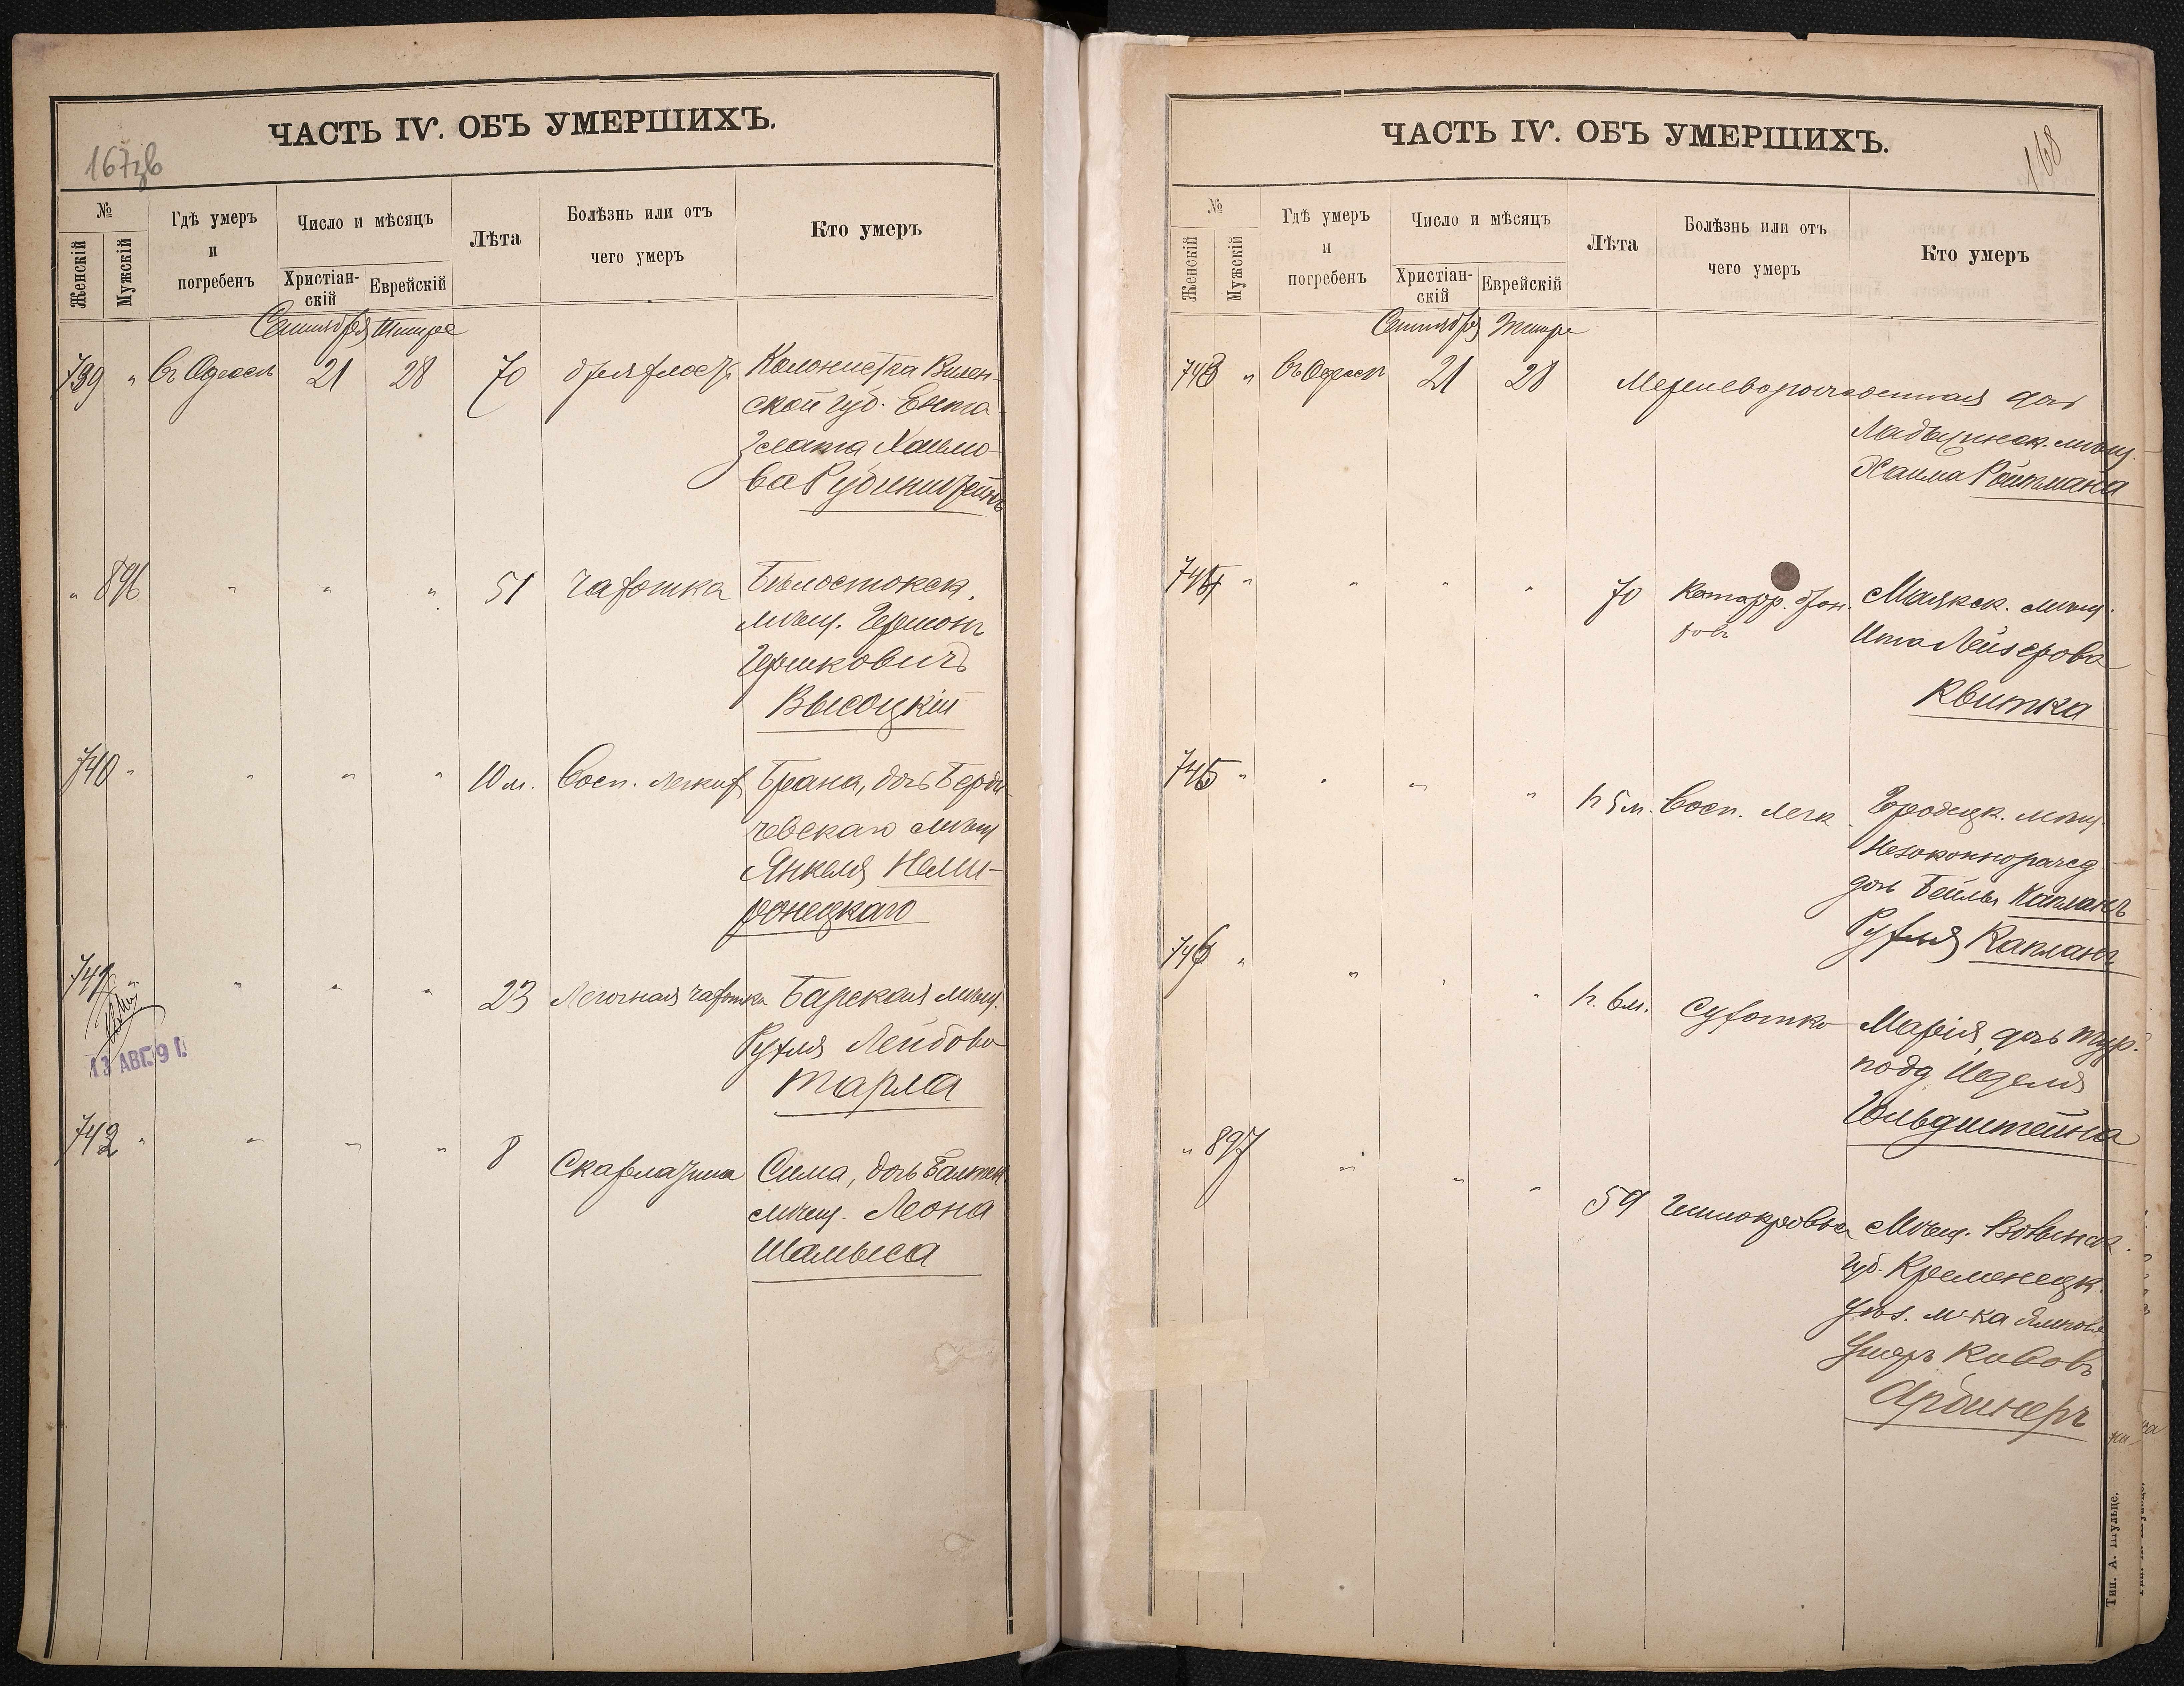 ЧАСТЬ IV. ОБЪ УМЕРШИХЪ.
167
№
Женскій
Мужскій
Гдѣ умеръ
и
погребенъ
Число и мѣсяцъ
Христіан-
скій
Еврейскій
Лѣта
Болѣзнь или отъ
чего умеръ
Кто умеръ
Сентября Тишре
739 " Въ Одессѣ 21 28 70 дряхлость Колонистка Вилен-
ской губ. Ента
Злата Хаимо-
ва Рубинштейнъ
" 896 " " " 51 Чахотка Бѣлостокск.
мѣщ. Гершонъ
Гершковичъ
Высоцкій
740 " " " " 10 м. Восп. легких Брана, дочь Берди-
чевскаго мѣщ
Янкеля Неми-
ронецкаго
741 " " " " 23 Легочная чахотка Барская мѣщ.
Рухля Лейбова
Тарла
13 АВГ.
742 " " " " 8 Скарлатина Сима, дочь Балтск.
мѣщ. Леона
Шамыса
ЧАСТЬ IV. ОБЪ УМЕРШИХЪ.
168
№
Женскій
Мужскій
Гдѣ умеръ
и
погребенъ
Число и мѣсяцъ
Христіан-
скій
Еврейскій
Лѣта
Болѣзнь или отъ
чего умеръ
Кто умеръ
Сентября Тишре
743 " Въ Одессѣ 21 28 Мертворожденная дочь
Ладыжинск. мѣщ.
Хаима Ройтмана
744 " " " " 70 Катарр. брон-
ховъ Маякск. мѣщ.
Ита Лейзерова
Квитка
745 " " " " 5 м. Восп. легк Городецк. мѣщ.
Незаконнорожд
дочь Бейлы Капланъ
Рухля Капланъ
746 " " " " 6 м. Сухотка Марія, дочь Тур.
подд Иделя
Гольдштейна
" 897 " " " 59 Мѣщ. Волынск.
губ. Кременецк.
уѣз. м-ка Ямполя
Кивовъ
Арбинеръ
Тип. А. Шульце.